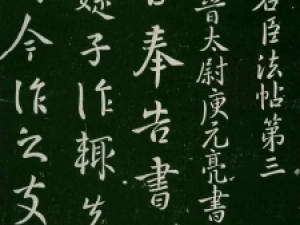 名臣法帖第三
晉太尉庾元亮書
奉告書
嫂子作輒半
今作之支